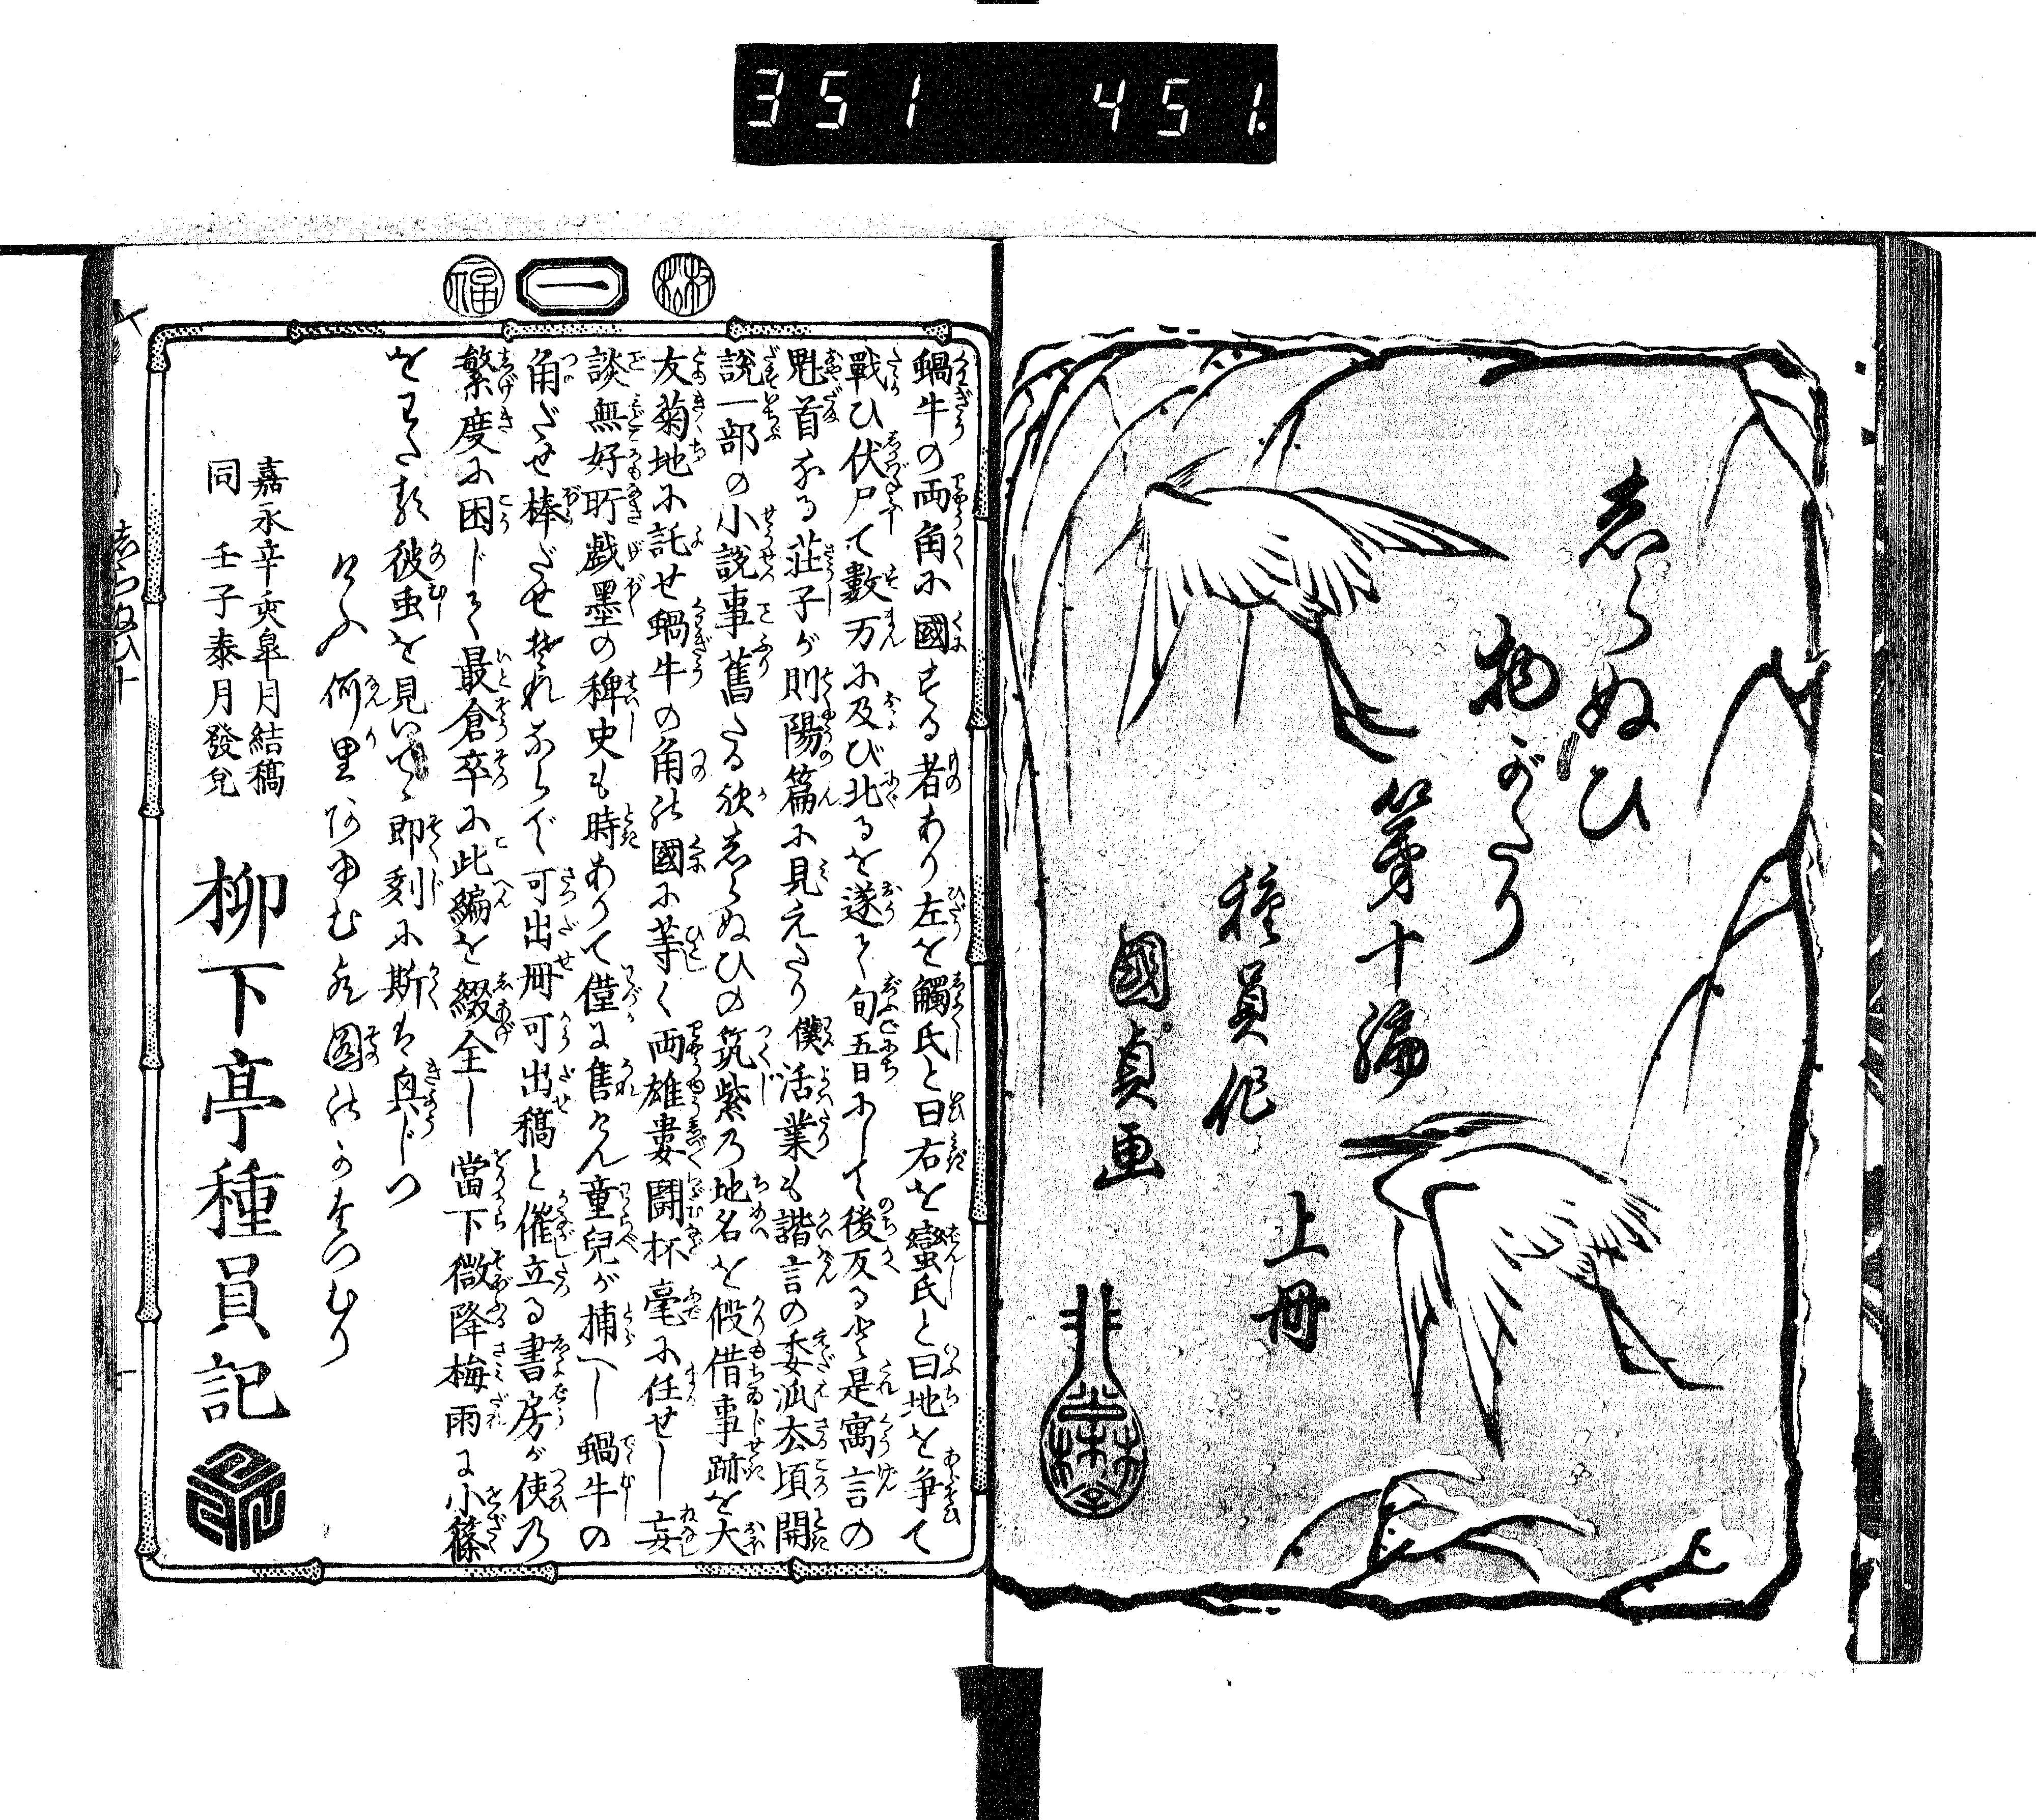 351 451
志らぬひ
物がたり
第十編
種員作
上冊
國貞画
林 一 福
蝸牛の両角に國する者あり左を觸氏と曰右を蠻氏と曰地を争て
戰ひ伏尸て數万に及び北るを遂て旬五日にして後反る是寓言の
魁首なる荘子が則陽篇に見えたり僕活業も諧言の委派去頃開
説一部の小説事舊たる欤志らぬひの筑紫乃地名を假借事跡を大
友菊地に託せ蝸牛の角の國に等く両雄妻闘杯毫に任せし妄
談無好町戯墨の稗史も時ありて僅に售けん童兒が捕へし蝸牛の
角だせ棒だせそれならで可出冊可出稿と催立る書房が使乃
繁度に困じて最倉卒に此編を綴全し當下微降梅雨に小篠
彼虫を見いで即刻に斯は興じつ
何里
嘉永辛亥皐月結稿
同 壬子泰月發兌
柳下亭種員記
志らぬひ十